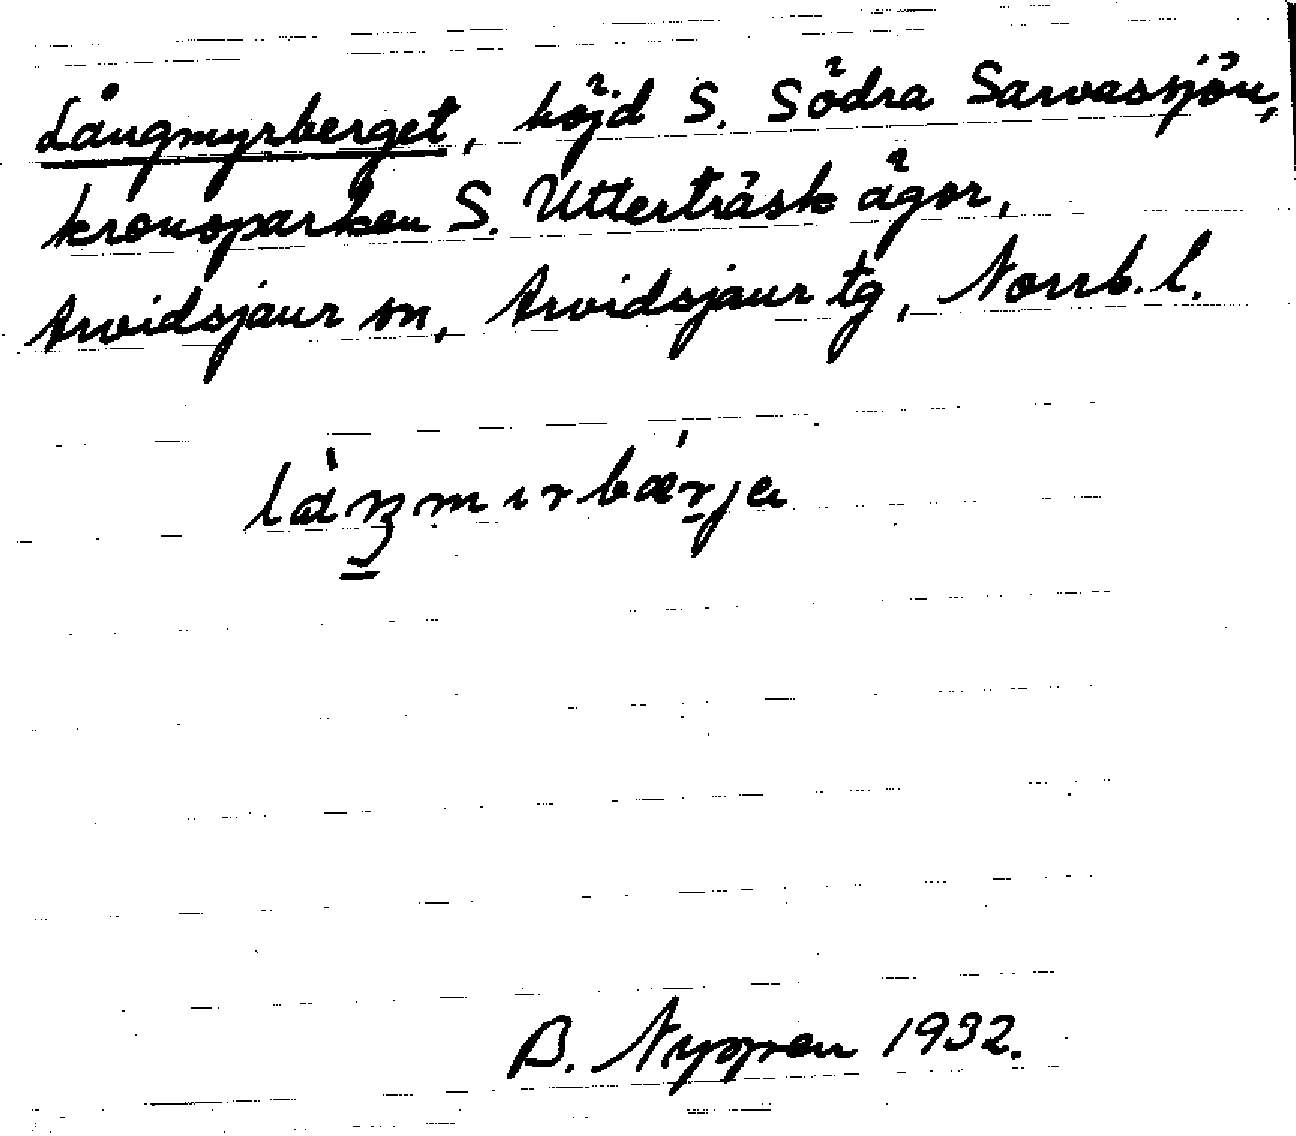 Långmyrberget, höjd S. Södra Sarvasjön,
kronoparken S. Utterträsk ägor,
Arvidsjaur sn, Arvidsjaur tg, Norrb. l.
B. Nyppen 1932.